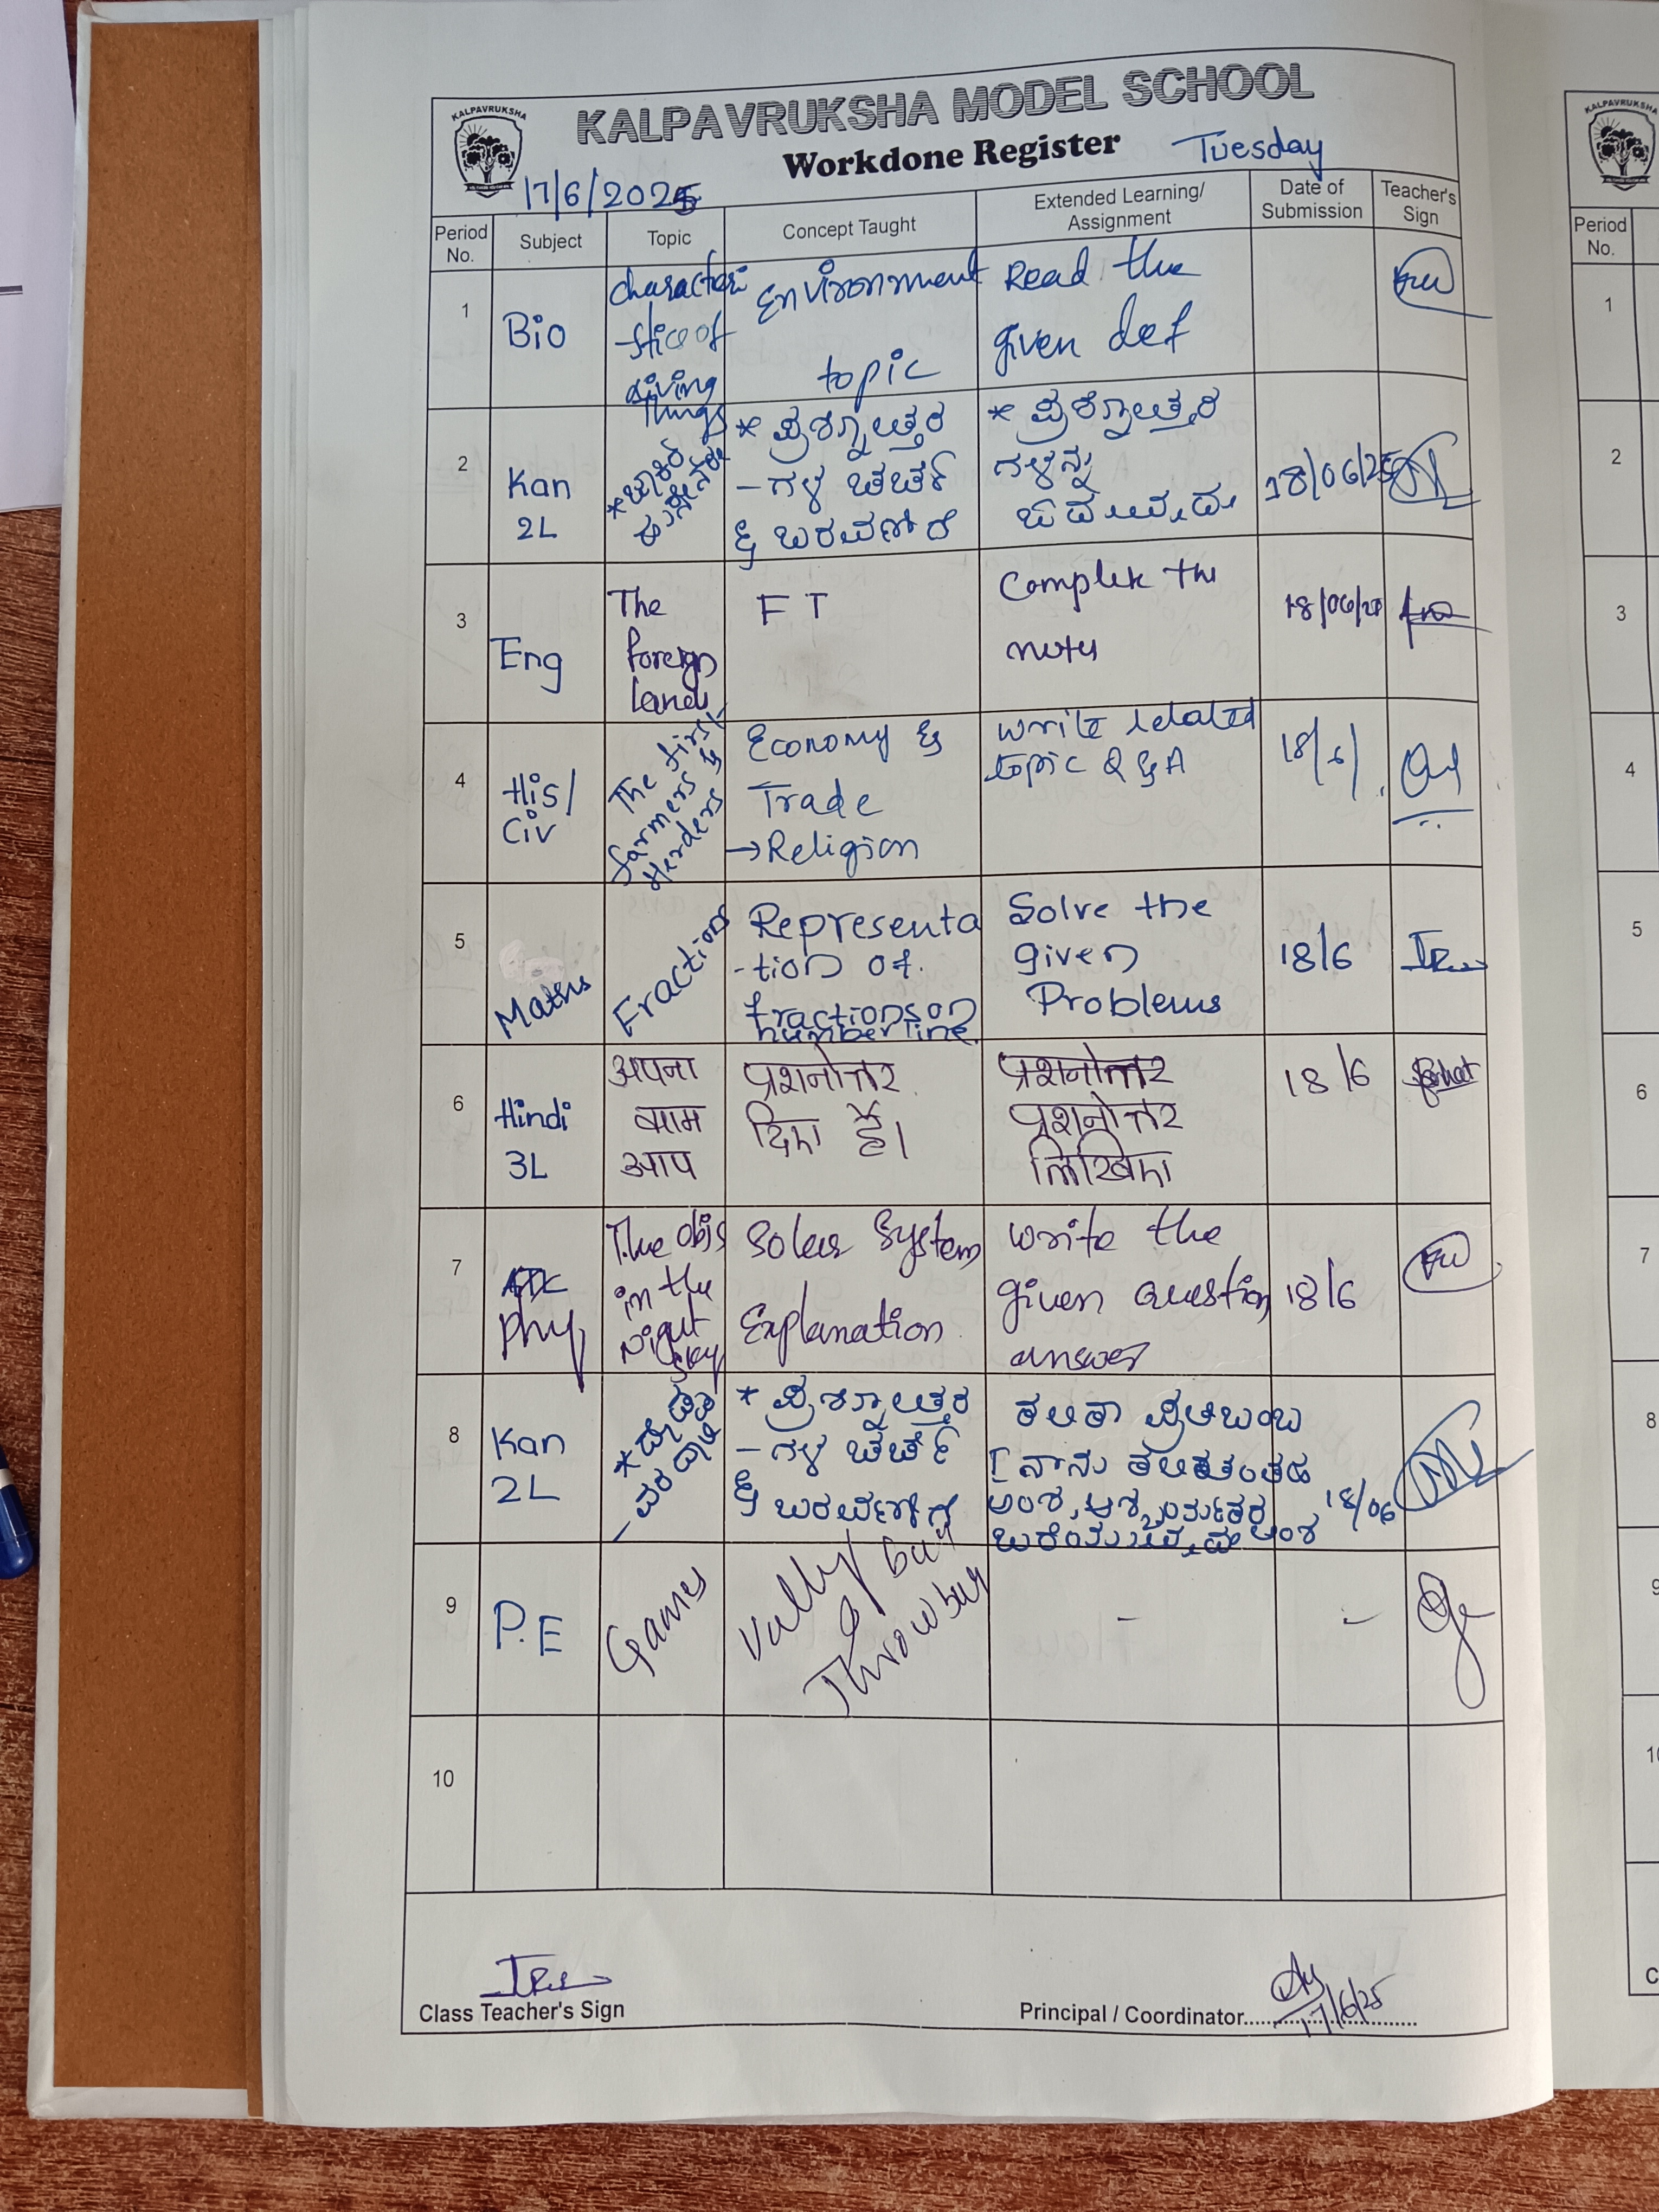 KALPAVRUKSHA
KALPAVRUKSHA MODEL SCHOOL
Workdone Register Tuesday
17/6/2025
Period No. Subject Topic Concept Taught Extended Learning/ Assignment Date of Submission Teacher's Sign
1 Bio
characteri
-stics of
living
things
Environment
topic
Read the
given def
2 Kan
2L
* ಪ್ರಶ್ನೋತ್ತರ
-ಗಳ ಚರ್ಚೆ
& ಬರವಣಿಗೆ
* ಪ್ರಶ್ನೋತ್ತರ
ಗಳನ್ನು
ಓದುವುದು
18/06/25
3 Eng
The
foreign
lands
F T
Complete the
notes
18/06/25
4 His/
Civ
The first
farmers &
Herders
Economy &
Trade
→Religion
write related
topic Q & A
18/6/
5 Maths
Fractions
Representa
-tion of
fractions on
number line
Solve the
given
Problems
18/6
6 Hindi
3L
अपना
काम
आप
प्रशनोत्तर
दिए है।
प्रशनोत्तर
प्रशनोत्तर
लिखिए
18/6
7 Phy
The objs
in the
Night
sky
Solar System
Explanation
write the
given question
answer
18/6
8 Kan
2L
* ಪ್ರಶ್ನೋತ್ತರ
-ಗಳ ಚರ್ಚೆ
& ಬರವಣಿಗೆ
18/06
9 P.E
Games
Vally bay
&
Throwbay
-
-
10
Class Teacher's Sign
Principal / Coordinator
17/6/25
KALPAVRUKSHA
Period
No.
1
2
3
4
5
6
7
8
9
10
C